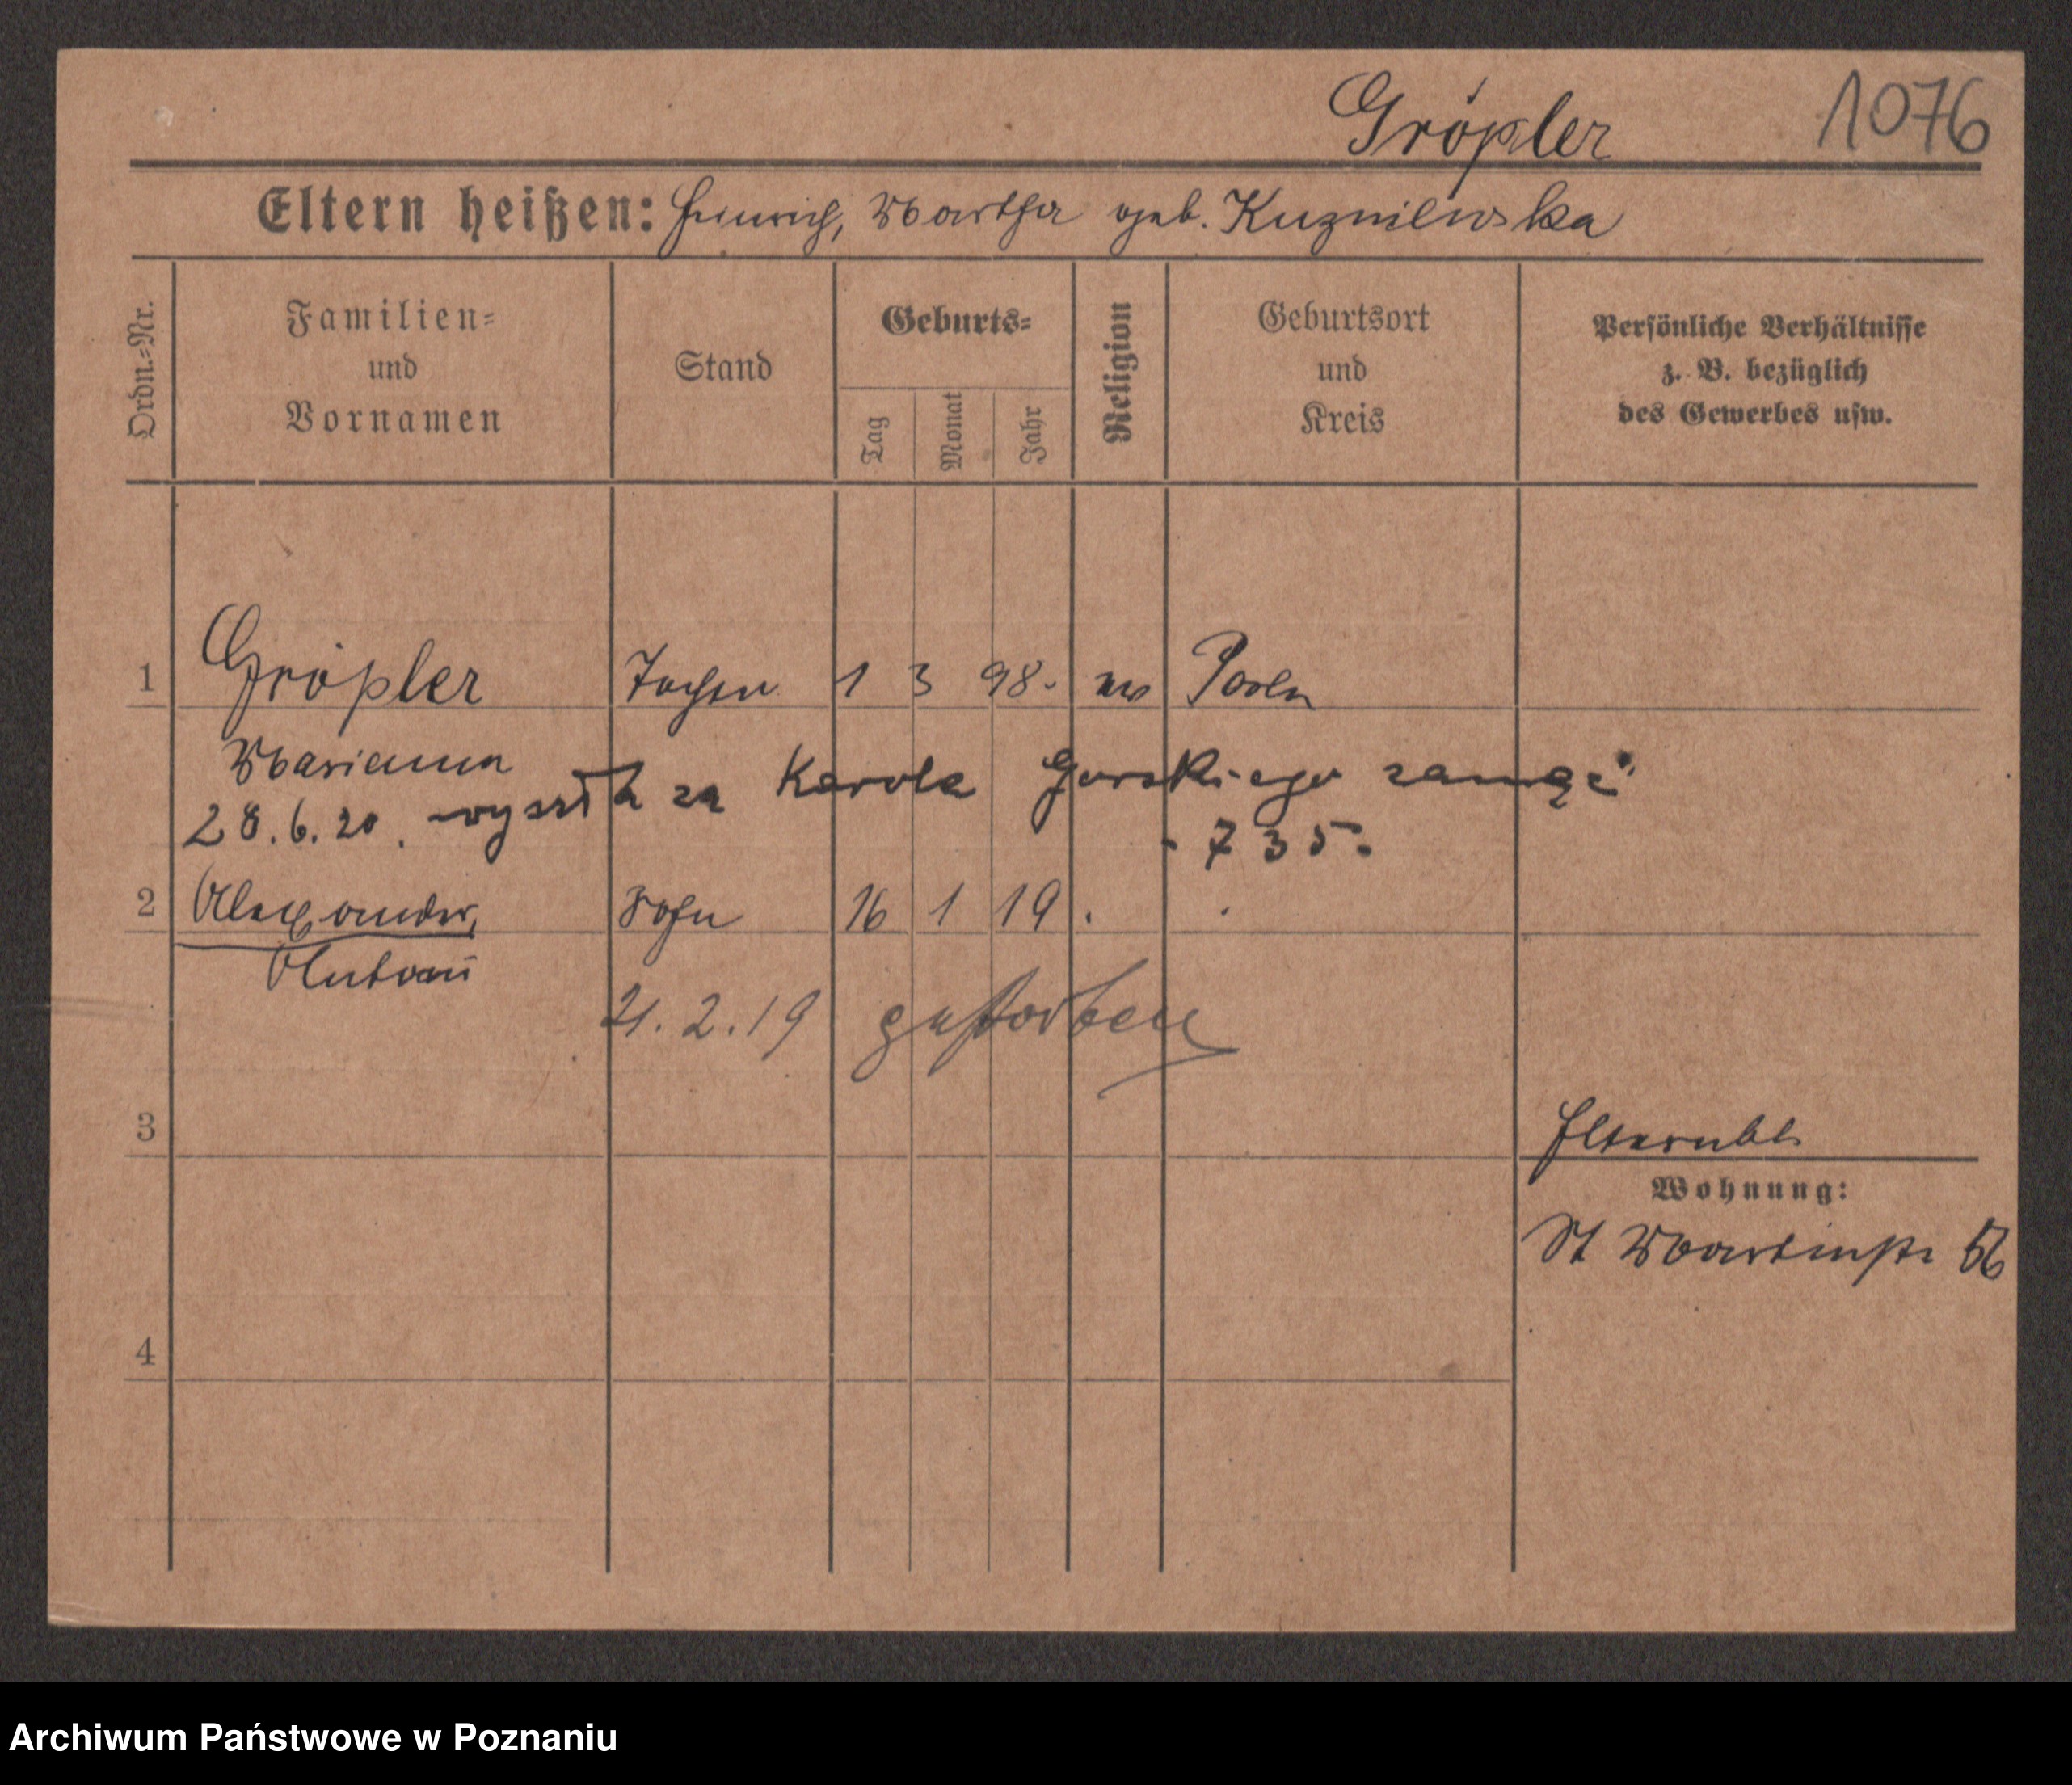 Gröpler 1076
Eltern heißen: Heinrich, Martha geb. Kuzniewska
Ordn.-Nr.
Familien-
und
Vornamen
Stand
Geburts-
Tag
Monat
Jahr
Religion
Geburtsort
und
Kreis
Persönliche Verhältnisse
z. B. bezüglich
des Gewerbes usw.
1 Gröpler 1 3 98. Posen
Marianna
28.6.20. wyszła za Karola Gorskiego zamąż
- 735-
2 Alexander, Sohn 16 1 19 . .
Antoni
21.2.19 gestorben
3
Wohnung:
St Martinstr
4
Archiwum Państwowe w Poznaniu